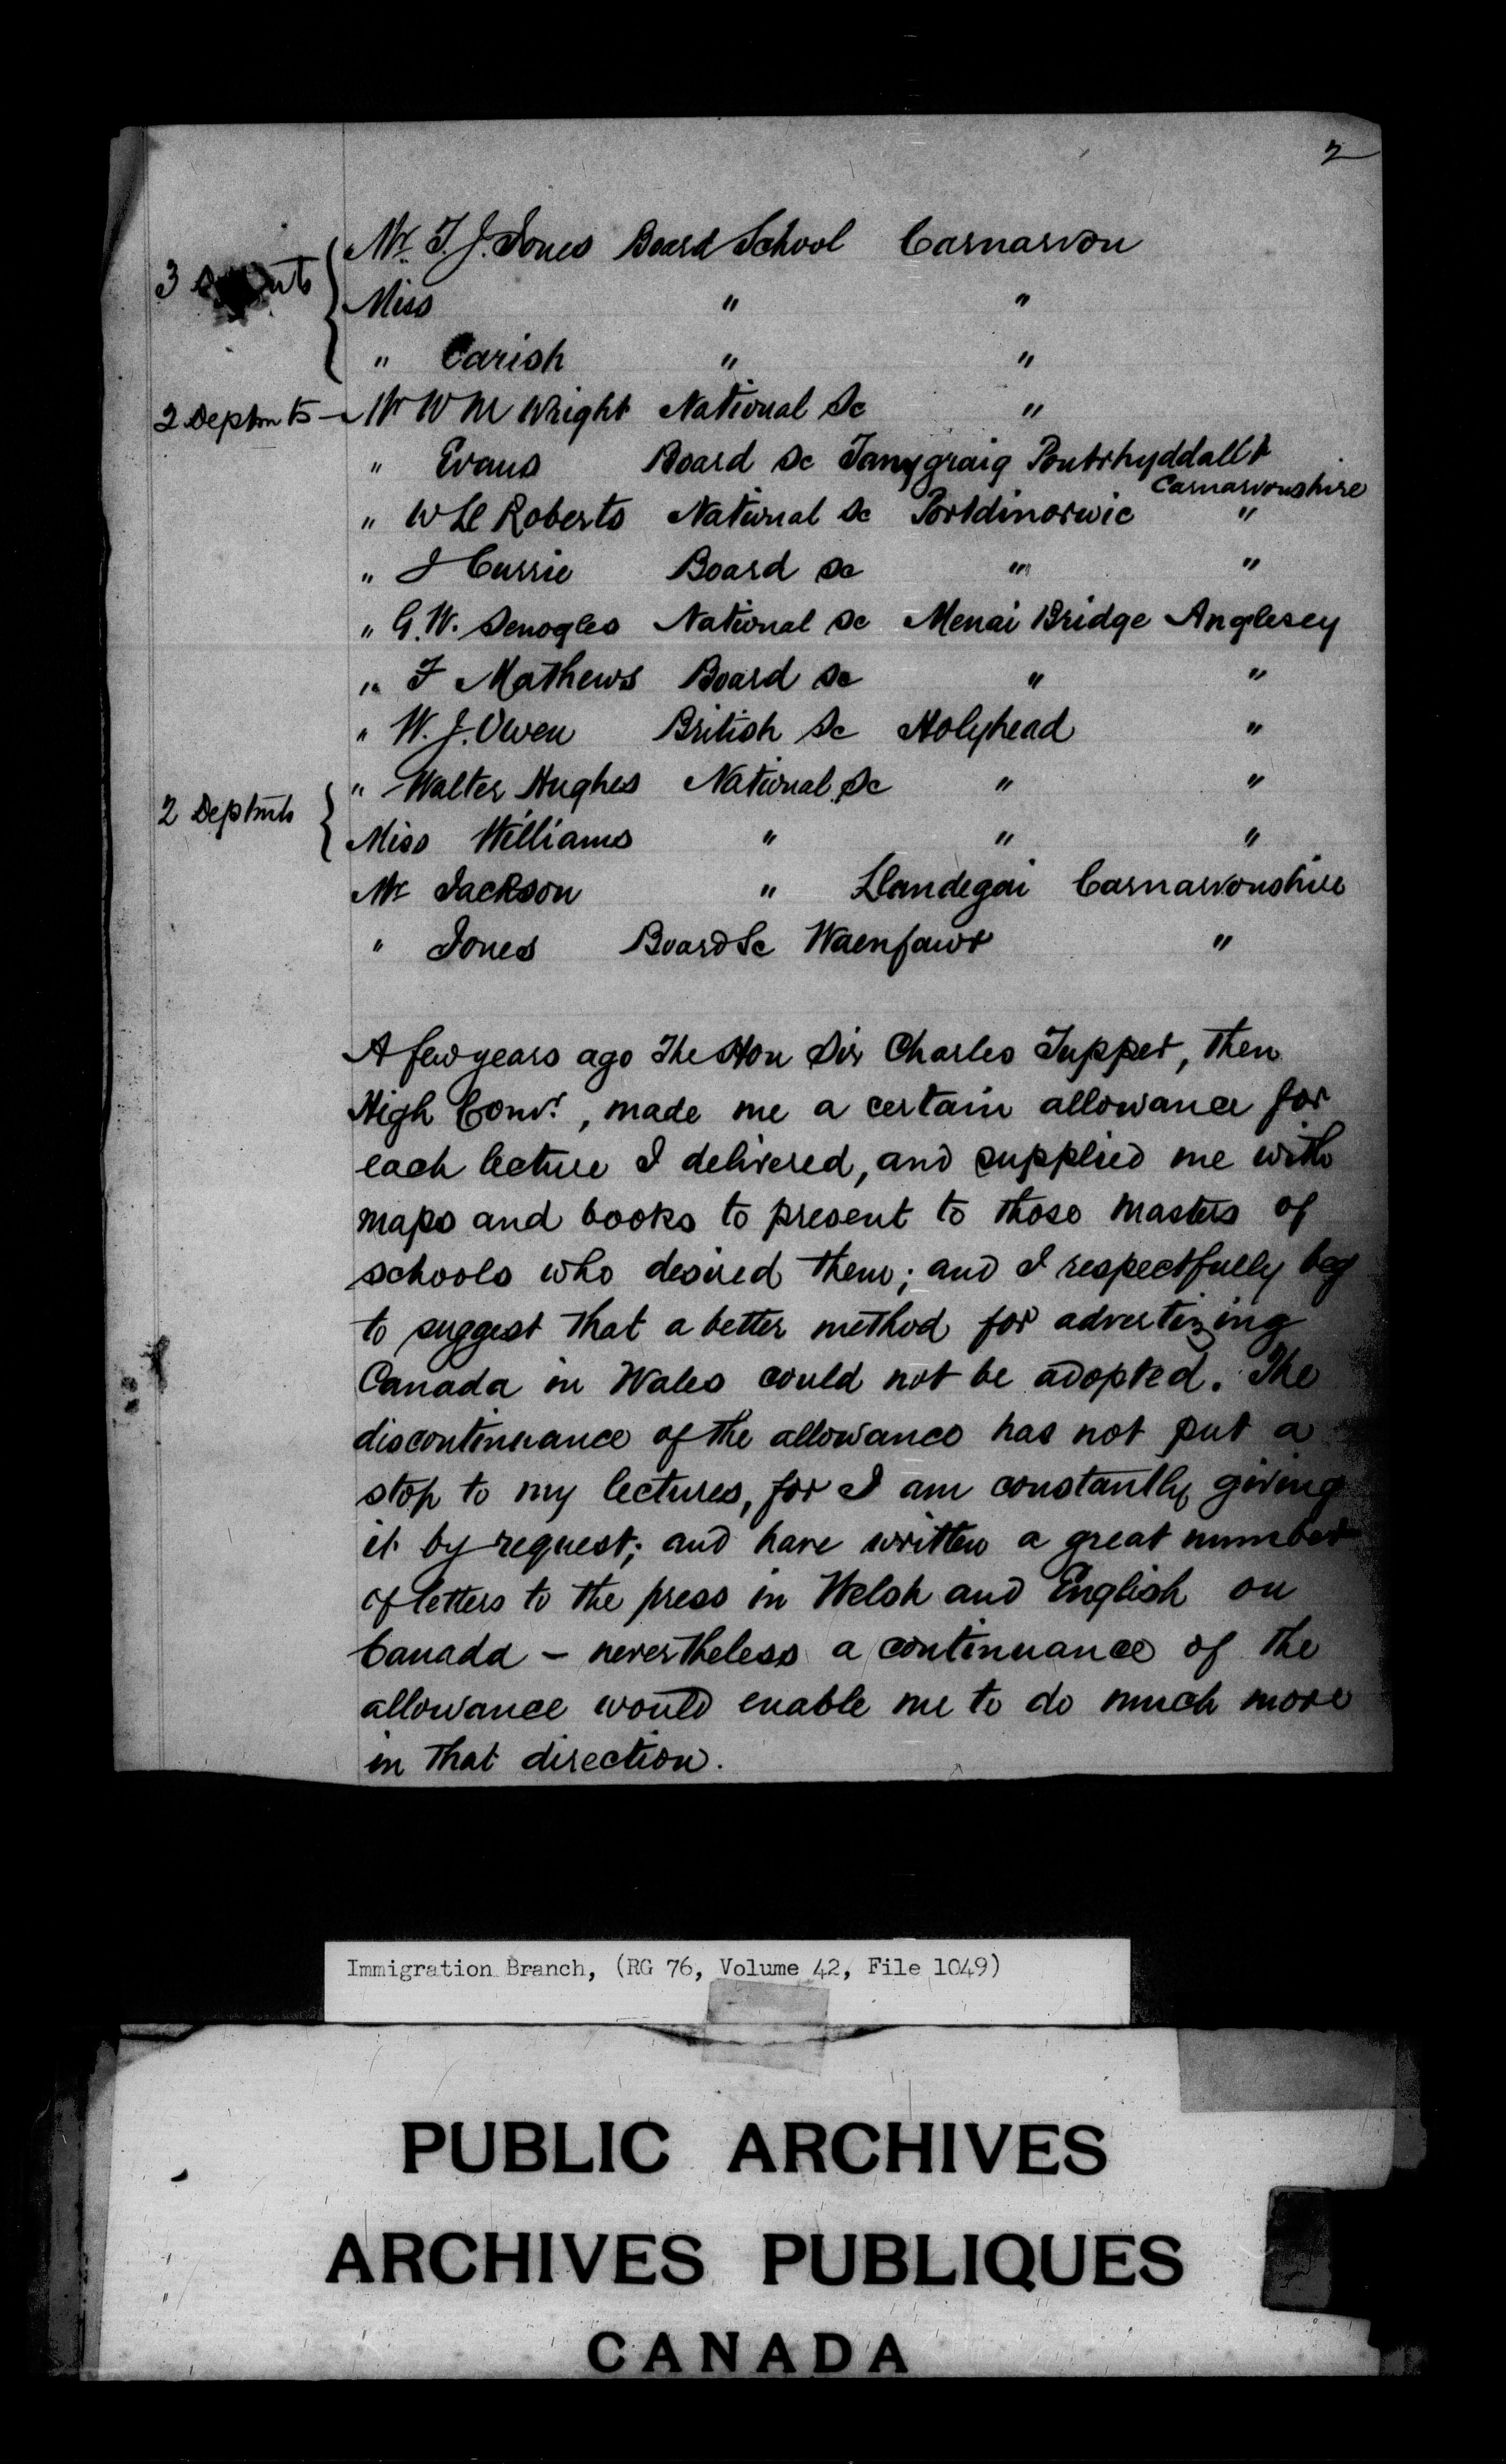 2
Mr. T. J. Jones Board School Carnarvon
3
Miss " "
" Carish " "
2 Deptmts - Mr W M Wright National Sc "
" Evans Board Sc Tanygraig Pontrhyddallt
Carnarvonshire
" W Roberts National Sc Portdinorwic "
" J Currie Board Sc " "
" G. W. Senogles National Sc Menai Bridge Anglesey
" F Mathews Board Sc " "
" W. J. Owen British Sc Holyhead "
" Walter Hughes National Sc " "
2 Deptmts
Miss Williams " " "
Mr Jackson " Llandegai Carnarvonshire
" Jones Board Sc Waenfawr "
A few years ago The Hon Sir Charles Tupper, then
High Comr., made me a certain allowance for
each lecture I delivered, and supplied me with
maps and books to present to those masters of
schools who desired them; and I respectfully beg
to suggest that a better method for advertizing
Canada in Wales could not be adopted. The
discontinuance of the allowance has not put a
stop to my lectures, for I am constantly giving
it by request; and have written a great number
of letters to the press in Welsh and English on
Canada - nevertheless a continuance of the
allowance would enable me to do much more
in that direction.
Immigration Branch, (RG 76, Volume 42, File 1049)
PUBLIC ARCHIVES
ARCHIVES PUBLIQUES
CANADA